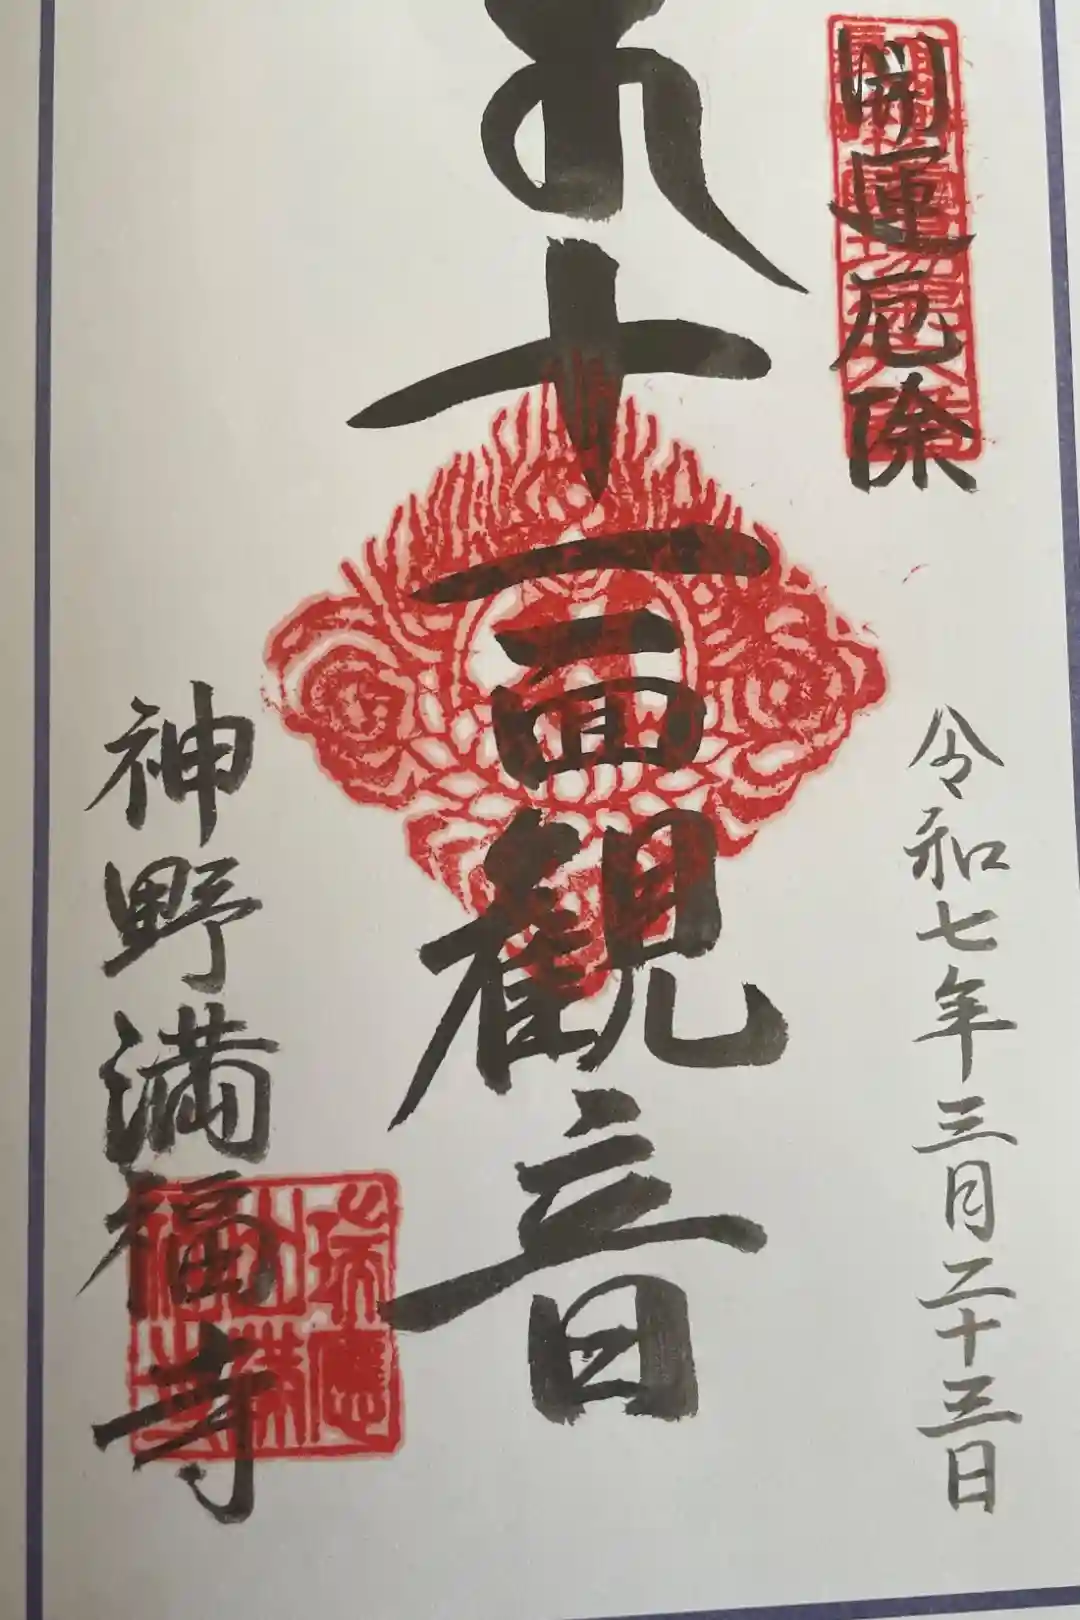 開運厄除
令和七年三月二十三日
十一面観音
神野満福寺